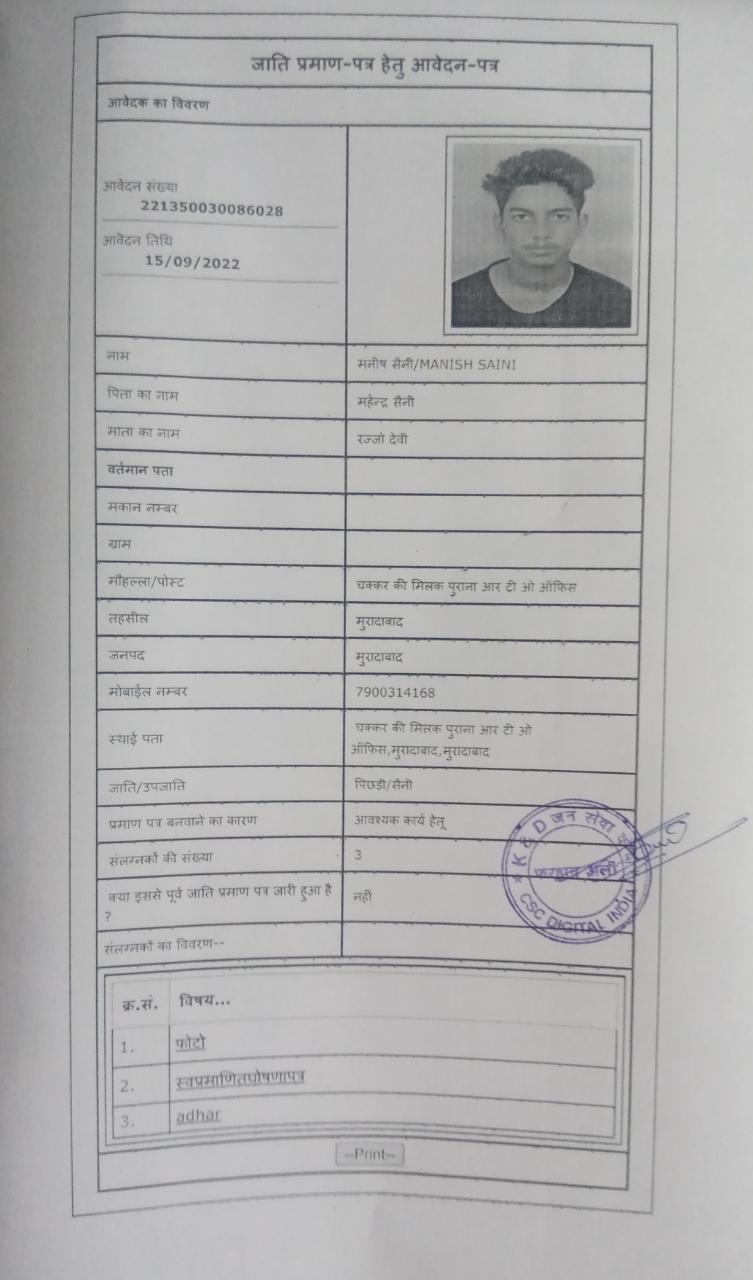 जाति प्रमाण-पत्र हेतु आवेदन-पत्र
आवेदक का विवरण
आवेदन संख्या
221350030086028
आवेदन तिथि
15/09/2022
नाम मनीष सैनी/MANISH SAINI
पिता का नाम महेन्द्र सैनी
माता का नाम रज्जो देवी
वर्तमान पता
मकान नम्बर
ग्राम
मौहल्ला/पोस्ट चक्कर की मिलक पुराना आर टी ओ ऑफिस
तहसील मुरादाबाद
जनपद मुरादाबाद
मोबाईल नम्बर 7900314168
स्थाई पता चक्कर की मिलक पुराना आर टी ओ
ऑफिस,मुरादाबाद,मुरादाबाद
जाति/उपजाति पिछडी/सैनी
प्रमाण पत्र बनवाने का कारण आवश्यक कार्य हेतू
संलग्नकों की संख्या 3
क्या इससे पूर्व जाति प्रमाण पत्र जारी हुआ है नहीं
?
संलग्नकों का विवरण--
K & D जन सेवा
अली
CSC DIGITAL INDIA
क्र.सं. विषय...
1. फोटो
2. स्वप्रमाणितघोषणापत्र
3. adhar
--Print--